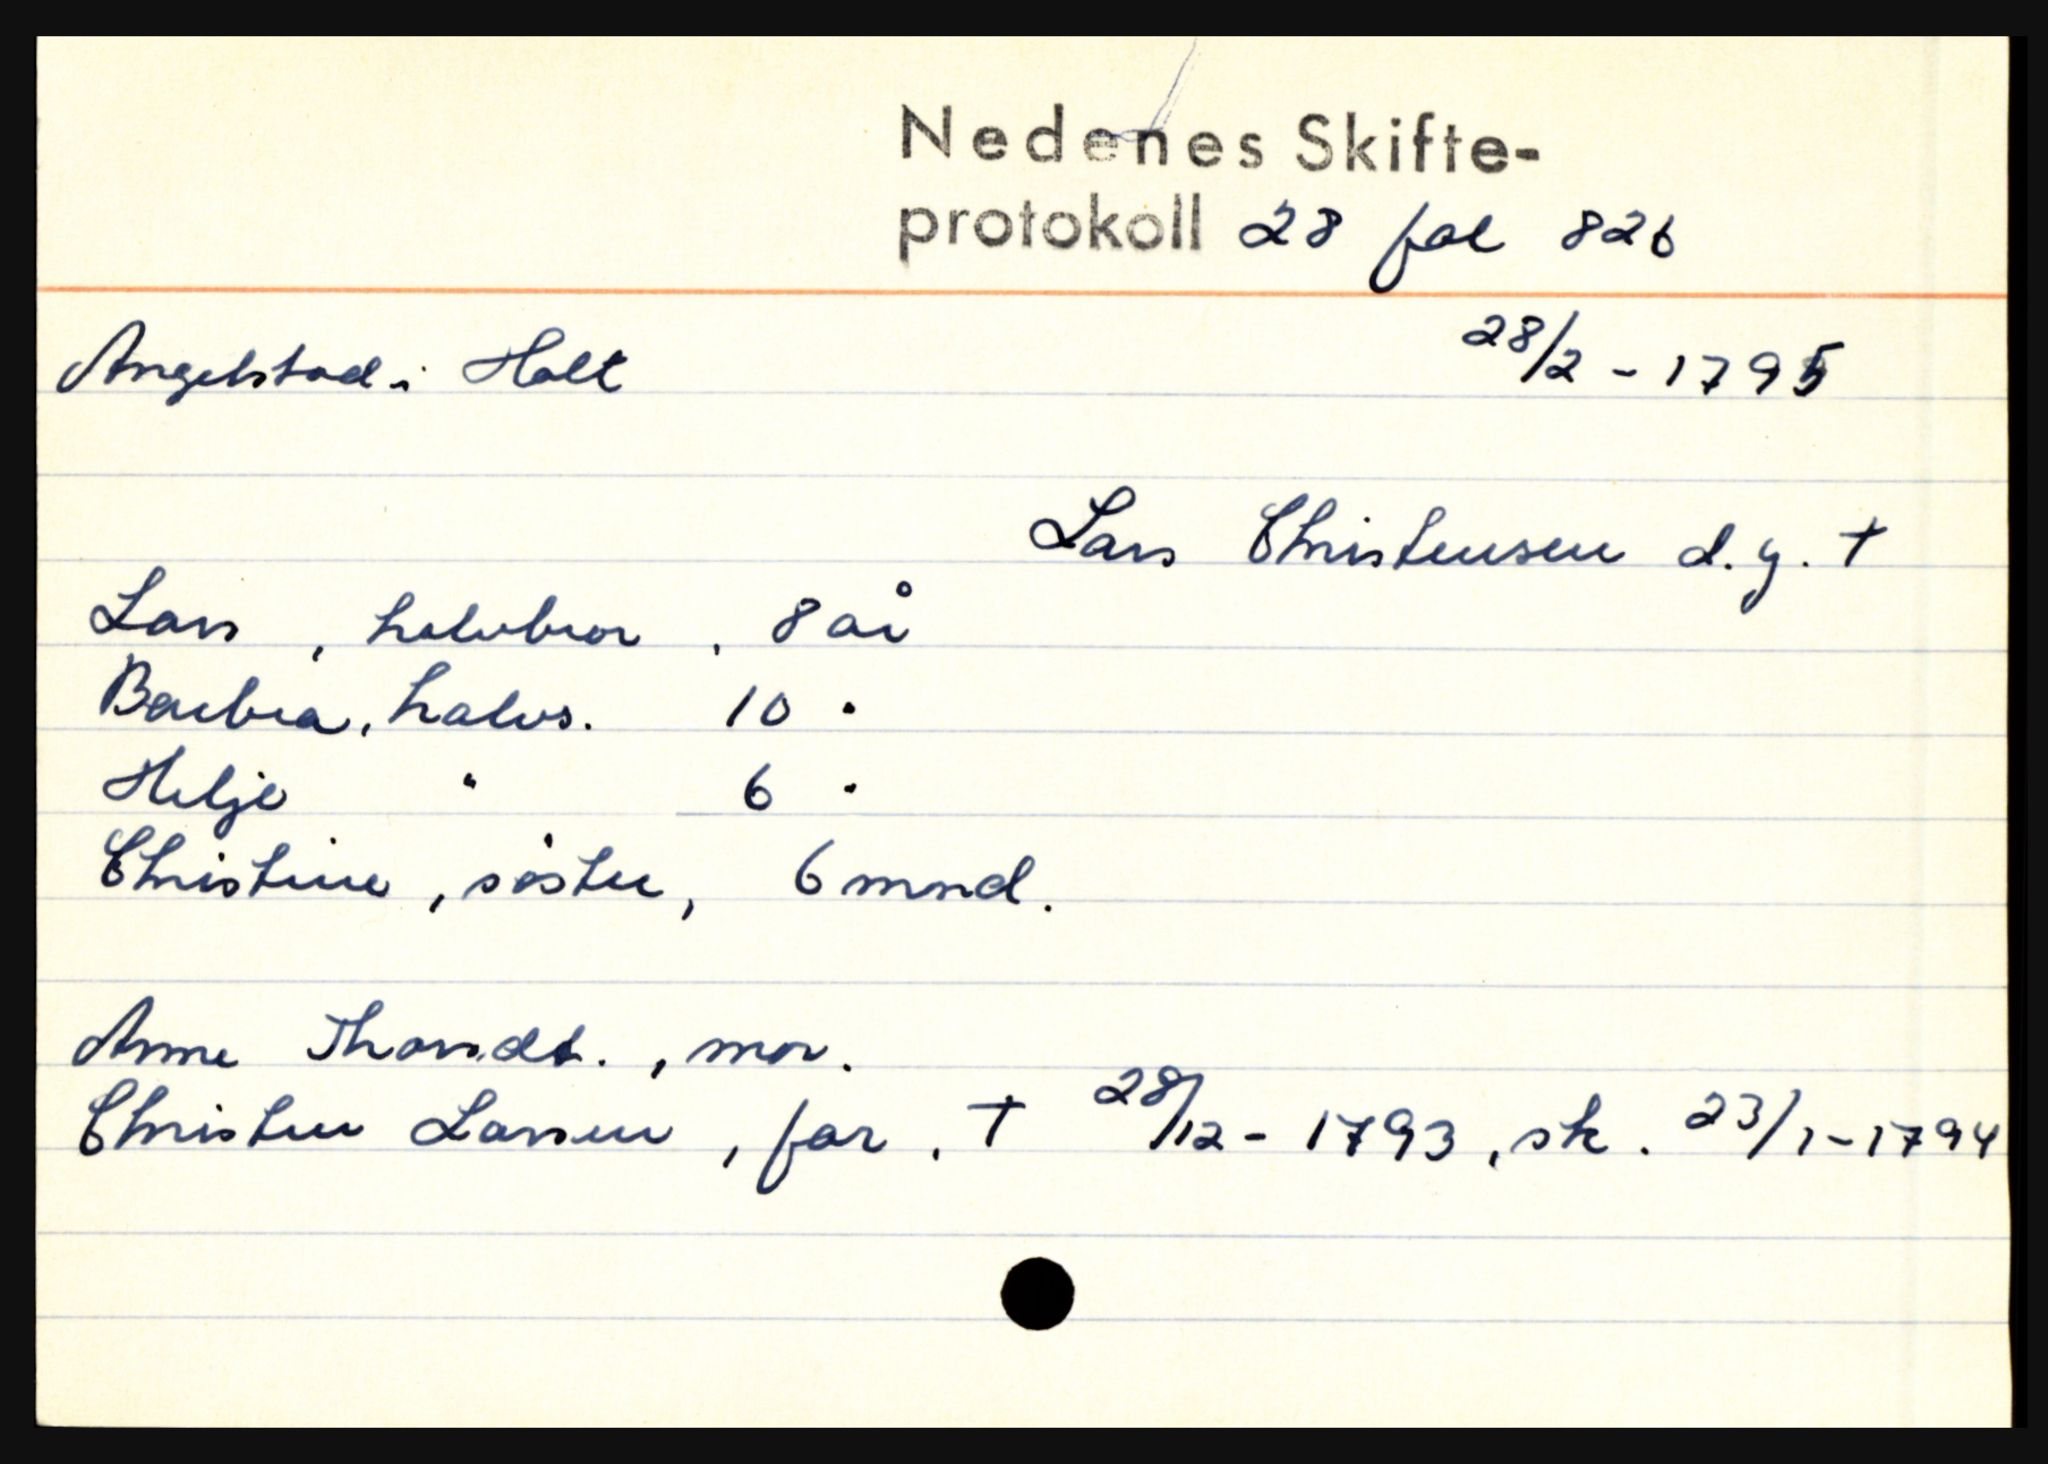 Nedenes Skifte-
protokoll 28 fol 826
Angelstad i Holt 28/2 - 1795
Lars Christensen d.y. †
Lars, halvbror, 8 år
Barbra, halvs. 10 "
Helje " 6 "
Christine, søster, 6 mnd.
Anne Thorsdt., mor.
Christen Larsen, far, † 28/12 - 1793, sk. 23/1 - 1794